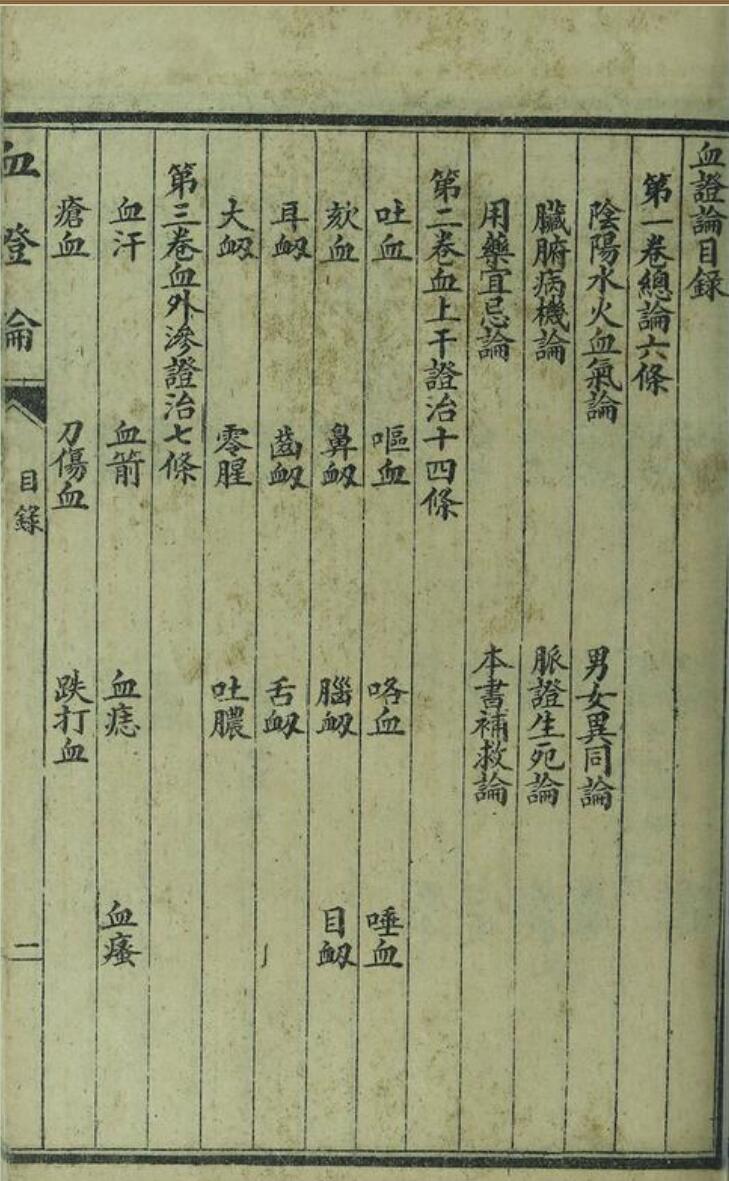 血證論目錄
第一卷總論六條
陰陽水火血氣論　男女異同論
臟腑病機論　脈證生死論
用藥宜忌論　本書補救論
第二卷血上干證治十四條
吐血　嘔血　咯血　唾血
欬血　鼻衄　腦衄　目衄
耳衄　齒衄　舌衄
大衄　零腥　吐膿
第三卷血外滲證治七條
血汗　血箭　血痣　血瘙
瘡血　刀傷血　跌打血
血證論　目錄　二